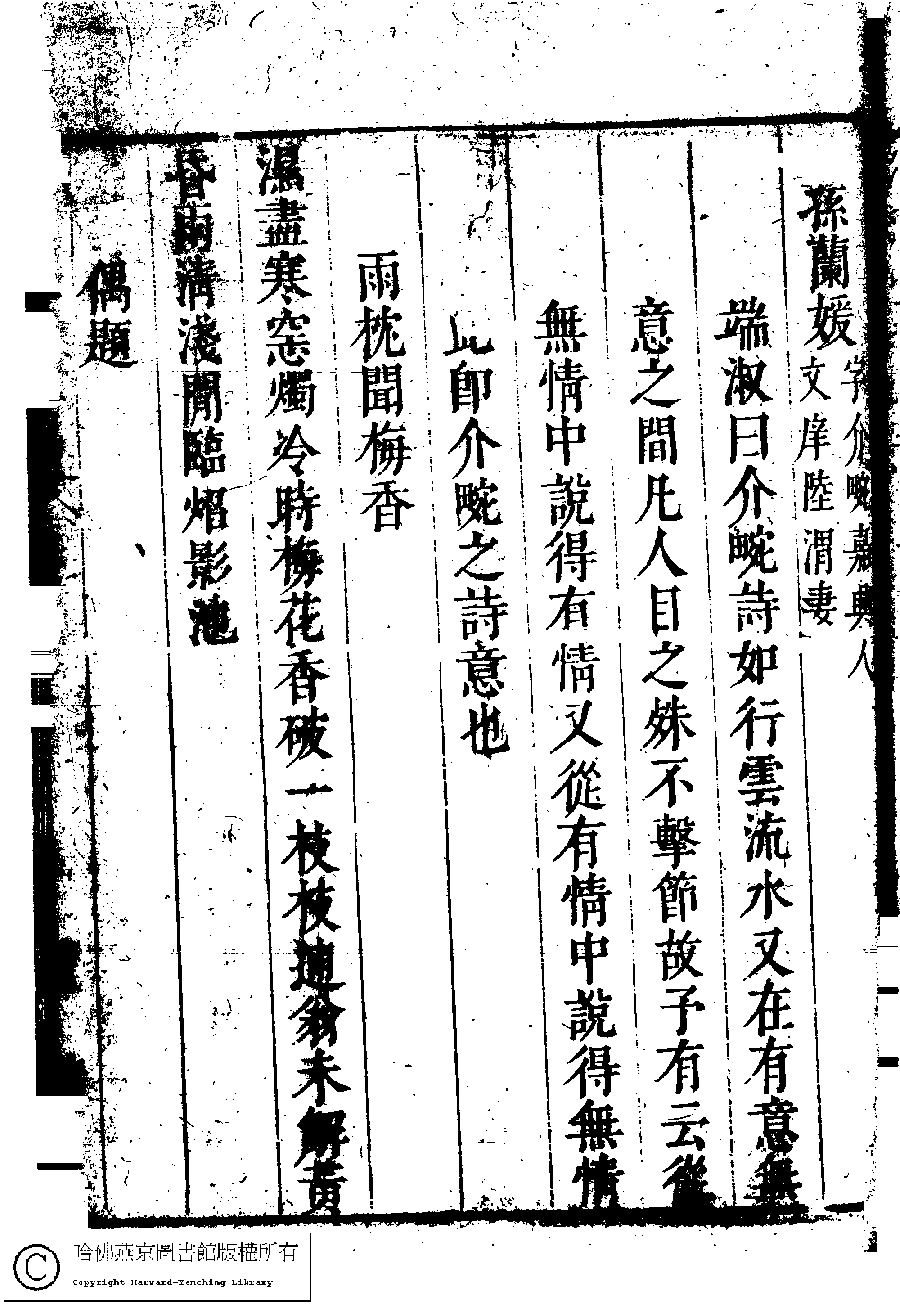 孫蘭媛字介畹嘉興人文庠陸渭妻
端淑曰介畹詩如行雲流水又在有意無
意之間凡人目之殊不擊節故予有云從
無情中說得有情又從有情中說得無情
此卽介畹之詩意也
雨枕聞梅香
濕盡寒窓燭冷時梅花香破一枝枝逋翁未解黃
昏雨清淺閒臨熖影池
偶題
哈佛燕京圖書館版權所有
Copyright Harvard-Yenching Library